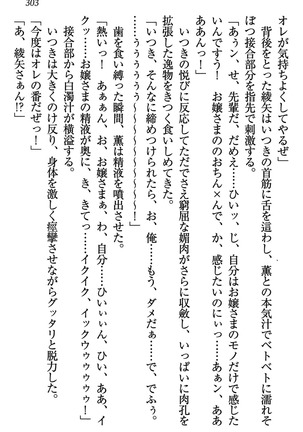 303
オレが気持ちよくしてやるぜ」
背後をとった綾矢はいつきの首筋に舌を這わし、薫との本気汁でベトベトに濡れそ
ぼつ接合部分を指先で刺激する。
「あぅン。せ、先輩、だめえ……ひいッ。じ、自分はお嬢さまのモノだけで感じて
いたいッ……！　お嬢さまののおち×んで、か、感じたいのにぃっ……あぁン、ああ
ああんっ！」
いつきの悦びに反応してただでさえ窮屈な媚肉がさらに収斂し、いっぱいに肉孔を
拡張した逸物をきつく食い締めてきた。
「いつき、そんなに締めつけられたら、お、俺……もう、ダメだぁ……で、でふぅ、
でううう～～～～～～～～～～～～～～～～～！」
歯を食い縛った瞬間、薫は精液を噴出させた。
「熱い！　あぁぁん、お、お嬢さまぁ、わ、自分……ひぃいぃん、ひい、ああ、イ
ックうぅぅ～～！　お嬢さまの精液が奥に、き、きてっ……イクイク、イックウゥウウウゥ！」
接合部から白濁汁が横溢する。
いつきは大きくのけ反り、身体を激しく痙攣させながらグッタリと脱力した。
「今度はオレの番だぜっ！」
「あ、綾矢さぁん!?」